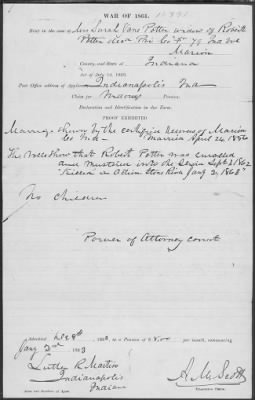 WAR OF 1861.
Brief in the case of Mrs Sarah Jane Potter widow of Robert
Potter decd Pri Co K 79 Ind Vol
Marion
County, and State of Indiana
Act of July 14, 1862.
Post Office address of Applicant: Indianapolis Ind
Claim for Widows Pension.
Declaration and Identification in due Form.
PROOF EXHIBITED
Marriage shown by the certificate of Marion
Co Ind — married April 24, 1856
The Rolls show that Robert Potter was enrolled
and mustered into the Sept 2 1862
"Killed in action Stone River Jany 2, 1863"
No Children
Power of Attorney correct
Admitted 1863, to a Pension of $8.00 per month, commencing
Jany 2nd 1863
Luther R Martin
Indianapolis
Indiana
A. M. Scott
Examining Clerk.
Name and Residence of Agent.